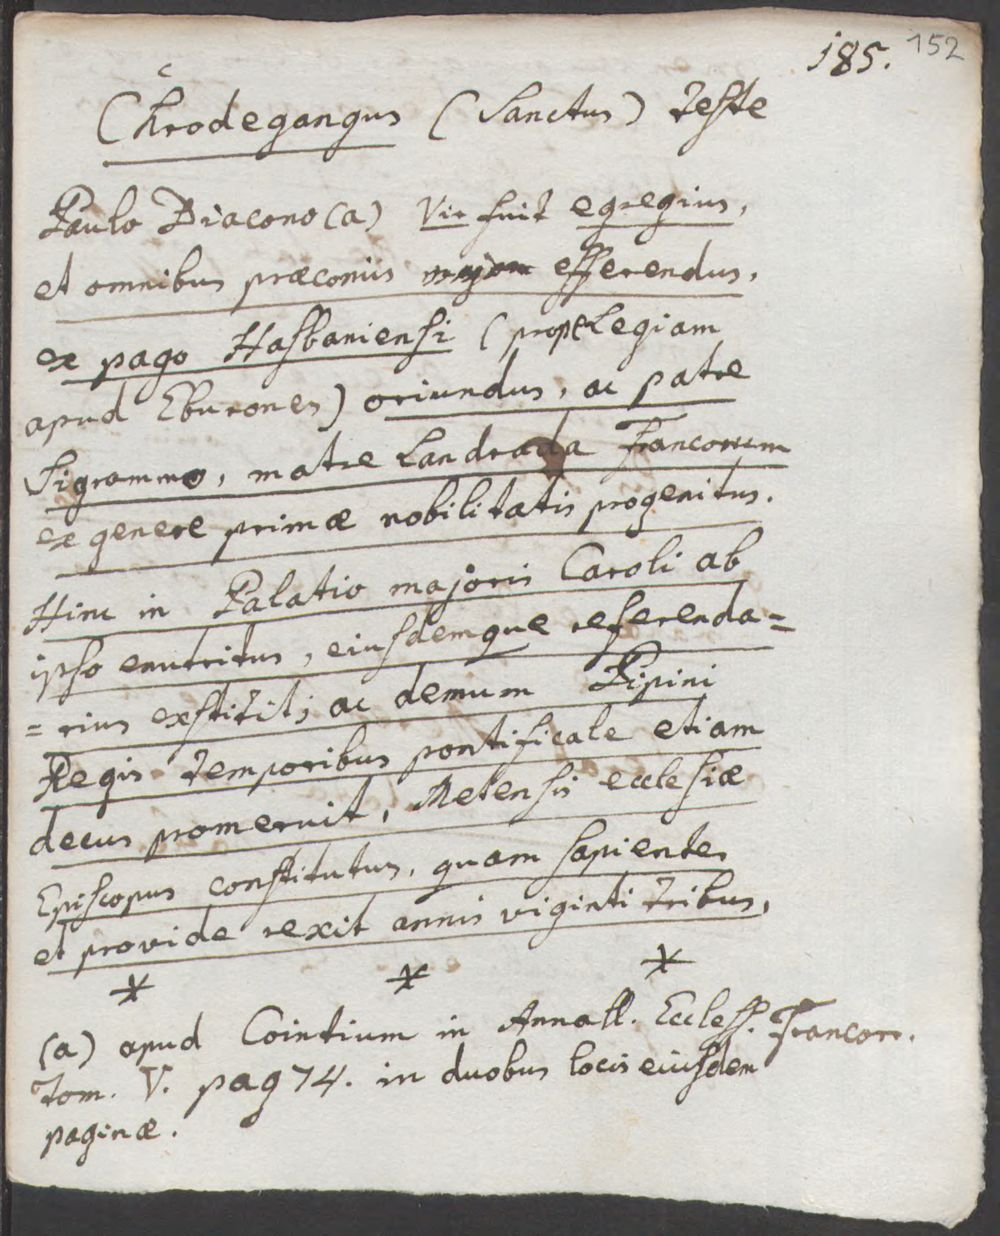 185. 152
c
Chrodegangus (Sanctus) teste
Paulo Diacono (a) Vir fuit egregius,
et omnibus præconiis efferendus,
ex pago Hasbaniensi (prope Legiam
apud Eburones) oriundus, ac patre
Sigrammo, matre Landrada Francorum
ex genere primæ nobilitatis progenitus.
Hinc in Palatio majoris Caroli ab
ipso enutritus, eiusdemque referenda=
=rius exstitit; ac demum Pipini
Regis temporibus pontificale etiam
decus promeruit, Metensis ecclesiæ
Episcopus constitutus, quam sapienter
et provide rexit annis viginti tribus,
* * *
(a) apud Cointium in Annall. Eccless. Francorr.
Tom. V. pag 74. in duobus locis eiusdem
paginæ.